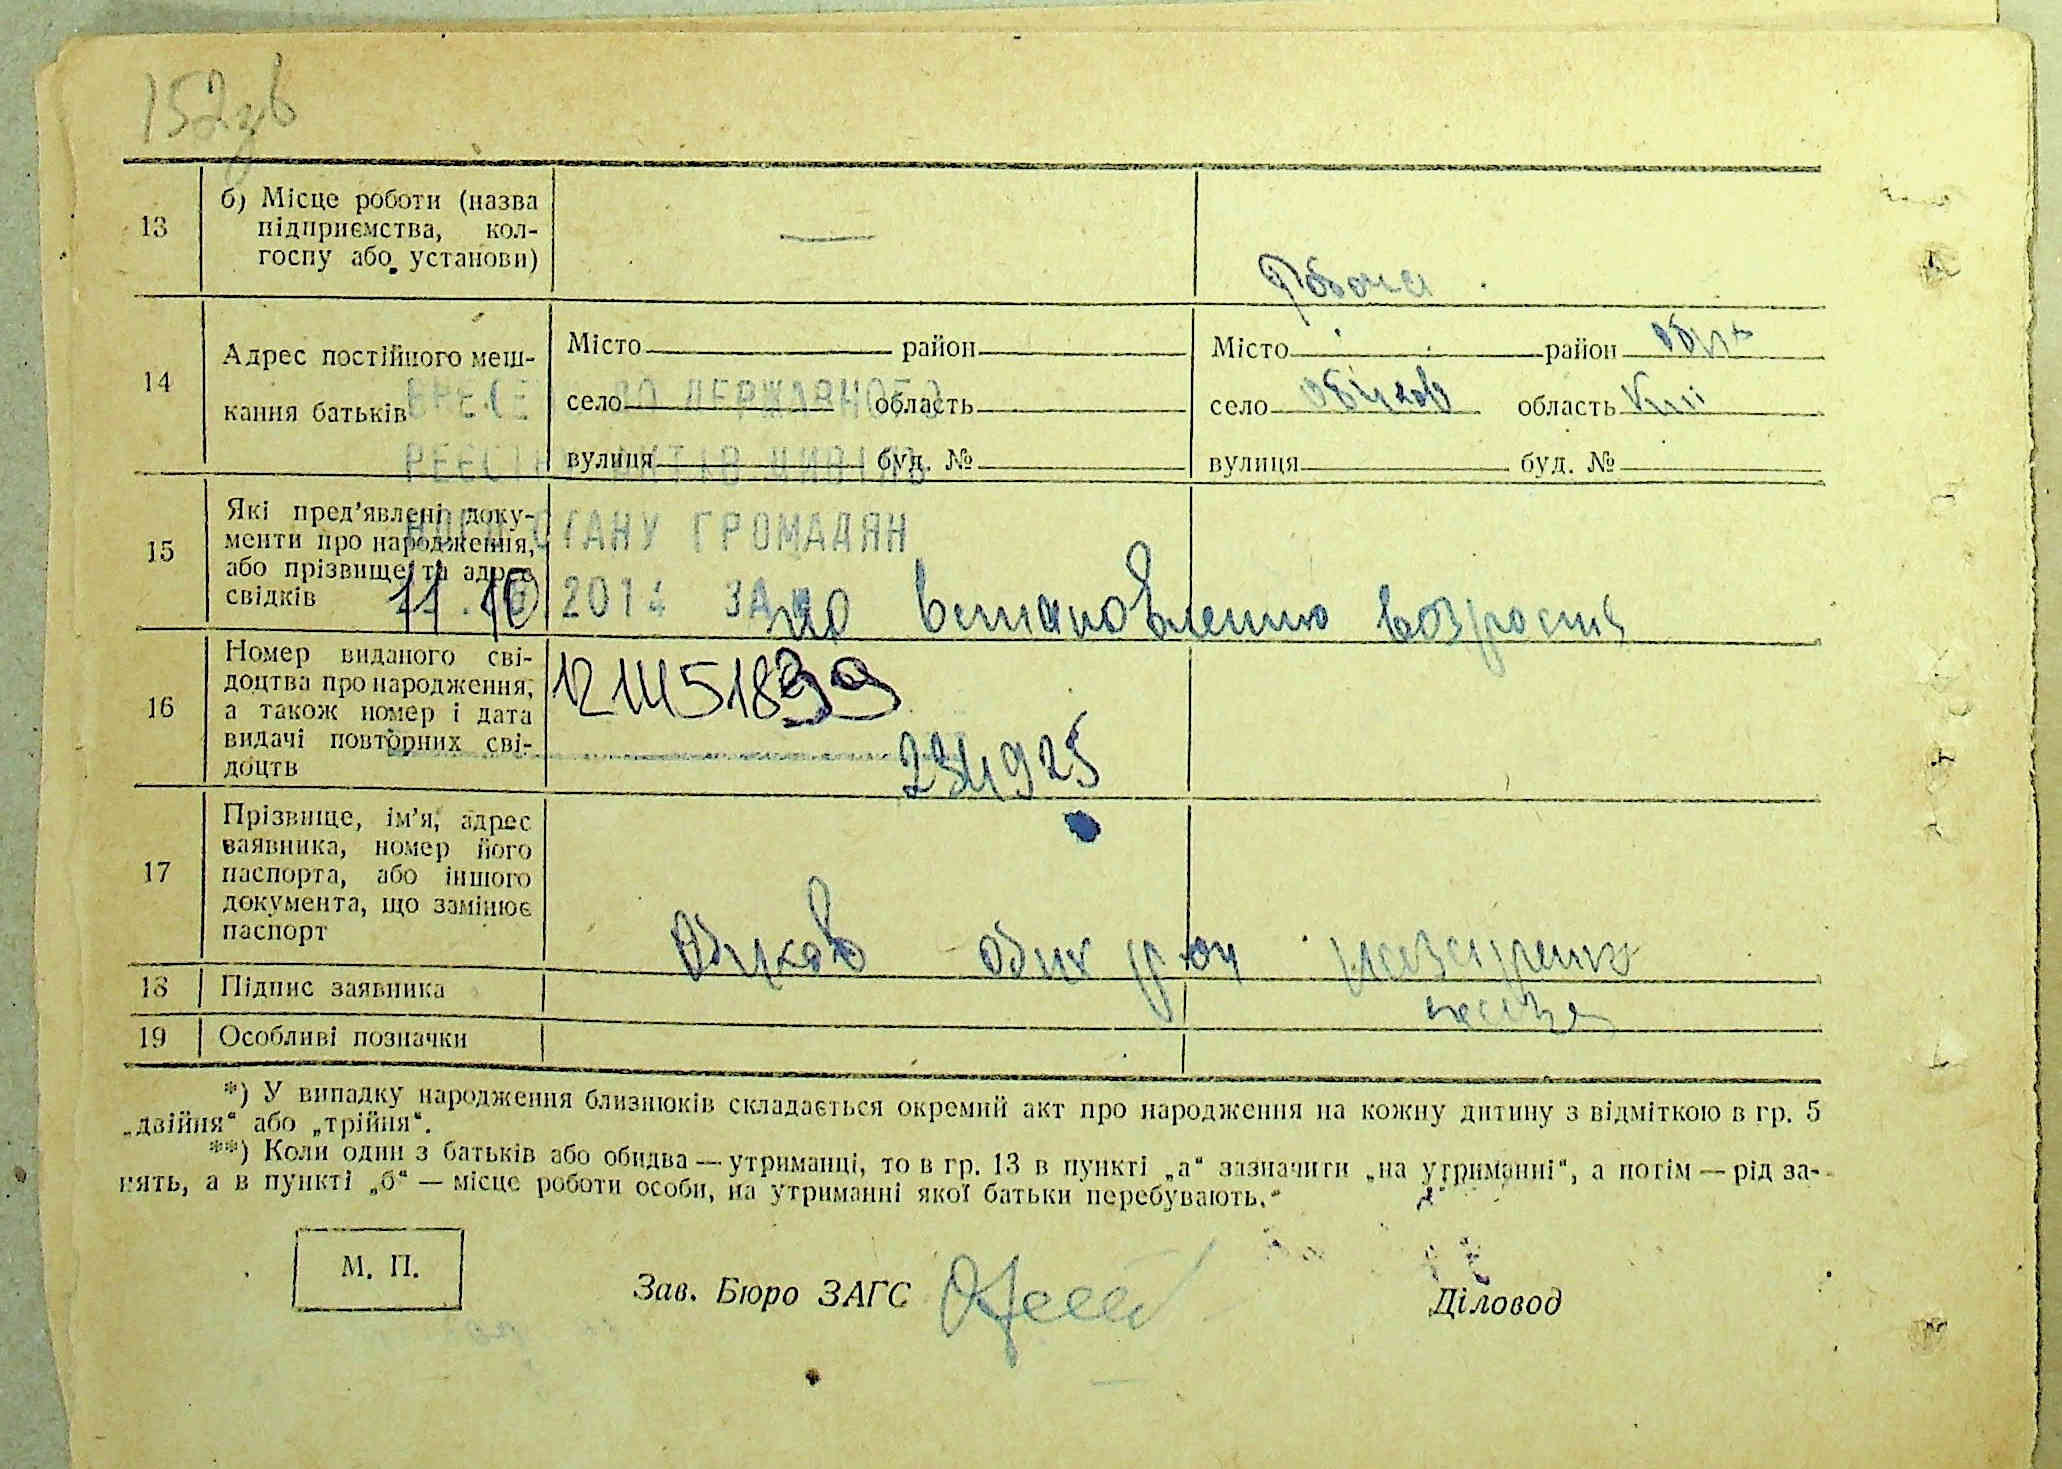 152зв
13
б) Місце роботи (назва
підприємства, кол-
госпу або установи)
—
Робоча
14
Адрес постійного меш-
кання батьків
Місто район
село область
вулиця буд. №
Місто район
село Обухов область
вулиця буд. №
ДЕРЖАВНОГО
СТАНУ ГРОМАДЯН
2014 ЗА №
15
Які пред'явлені доку-
менти про народження,
або прізвище та адрес
свідків
11.10
по встановлению возраста
16
Номер виданого сві-
доцтва про народження,
а також номер і дата
видачі повторних сві-
доцтв
234925
17
Прізвище, ім'я, адрес
заявника, номер його
паспорта, або іншого
документа, що замінює
паспорт
Обухов
18
Підпис заявника
19
Особливі позначки
*) У випадку народження близнюків складається окремий акт про народження на кожну дитину з відміткою в гр. 5
„двійня“ або „трійня“.
**) Коли один з батьків або обидва — утриманці, то в гр. 13 в пункті „а“ зазначити „на утриманні“, а потім — рід за-
нять, а в пункті „б“ — місце роботи особи, на утриманні якої батьки перебувають.
М. П.
Зав. Бюро ЗАГС
Діловод